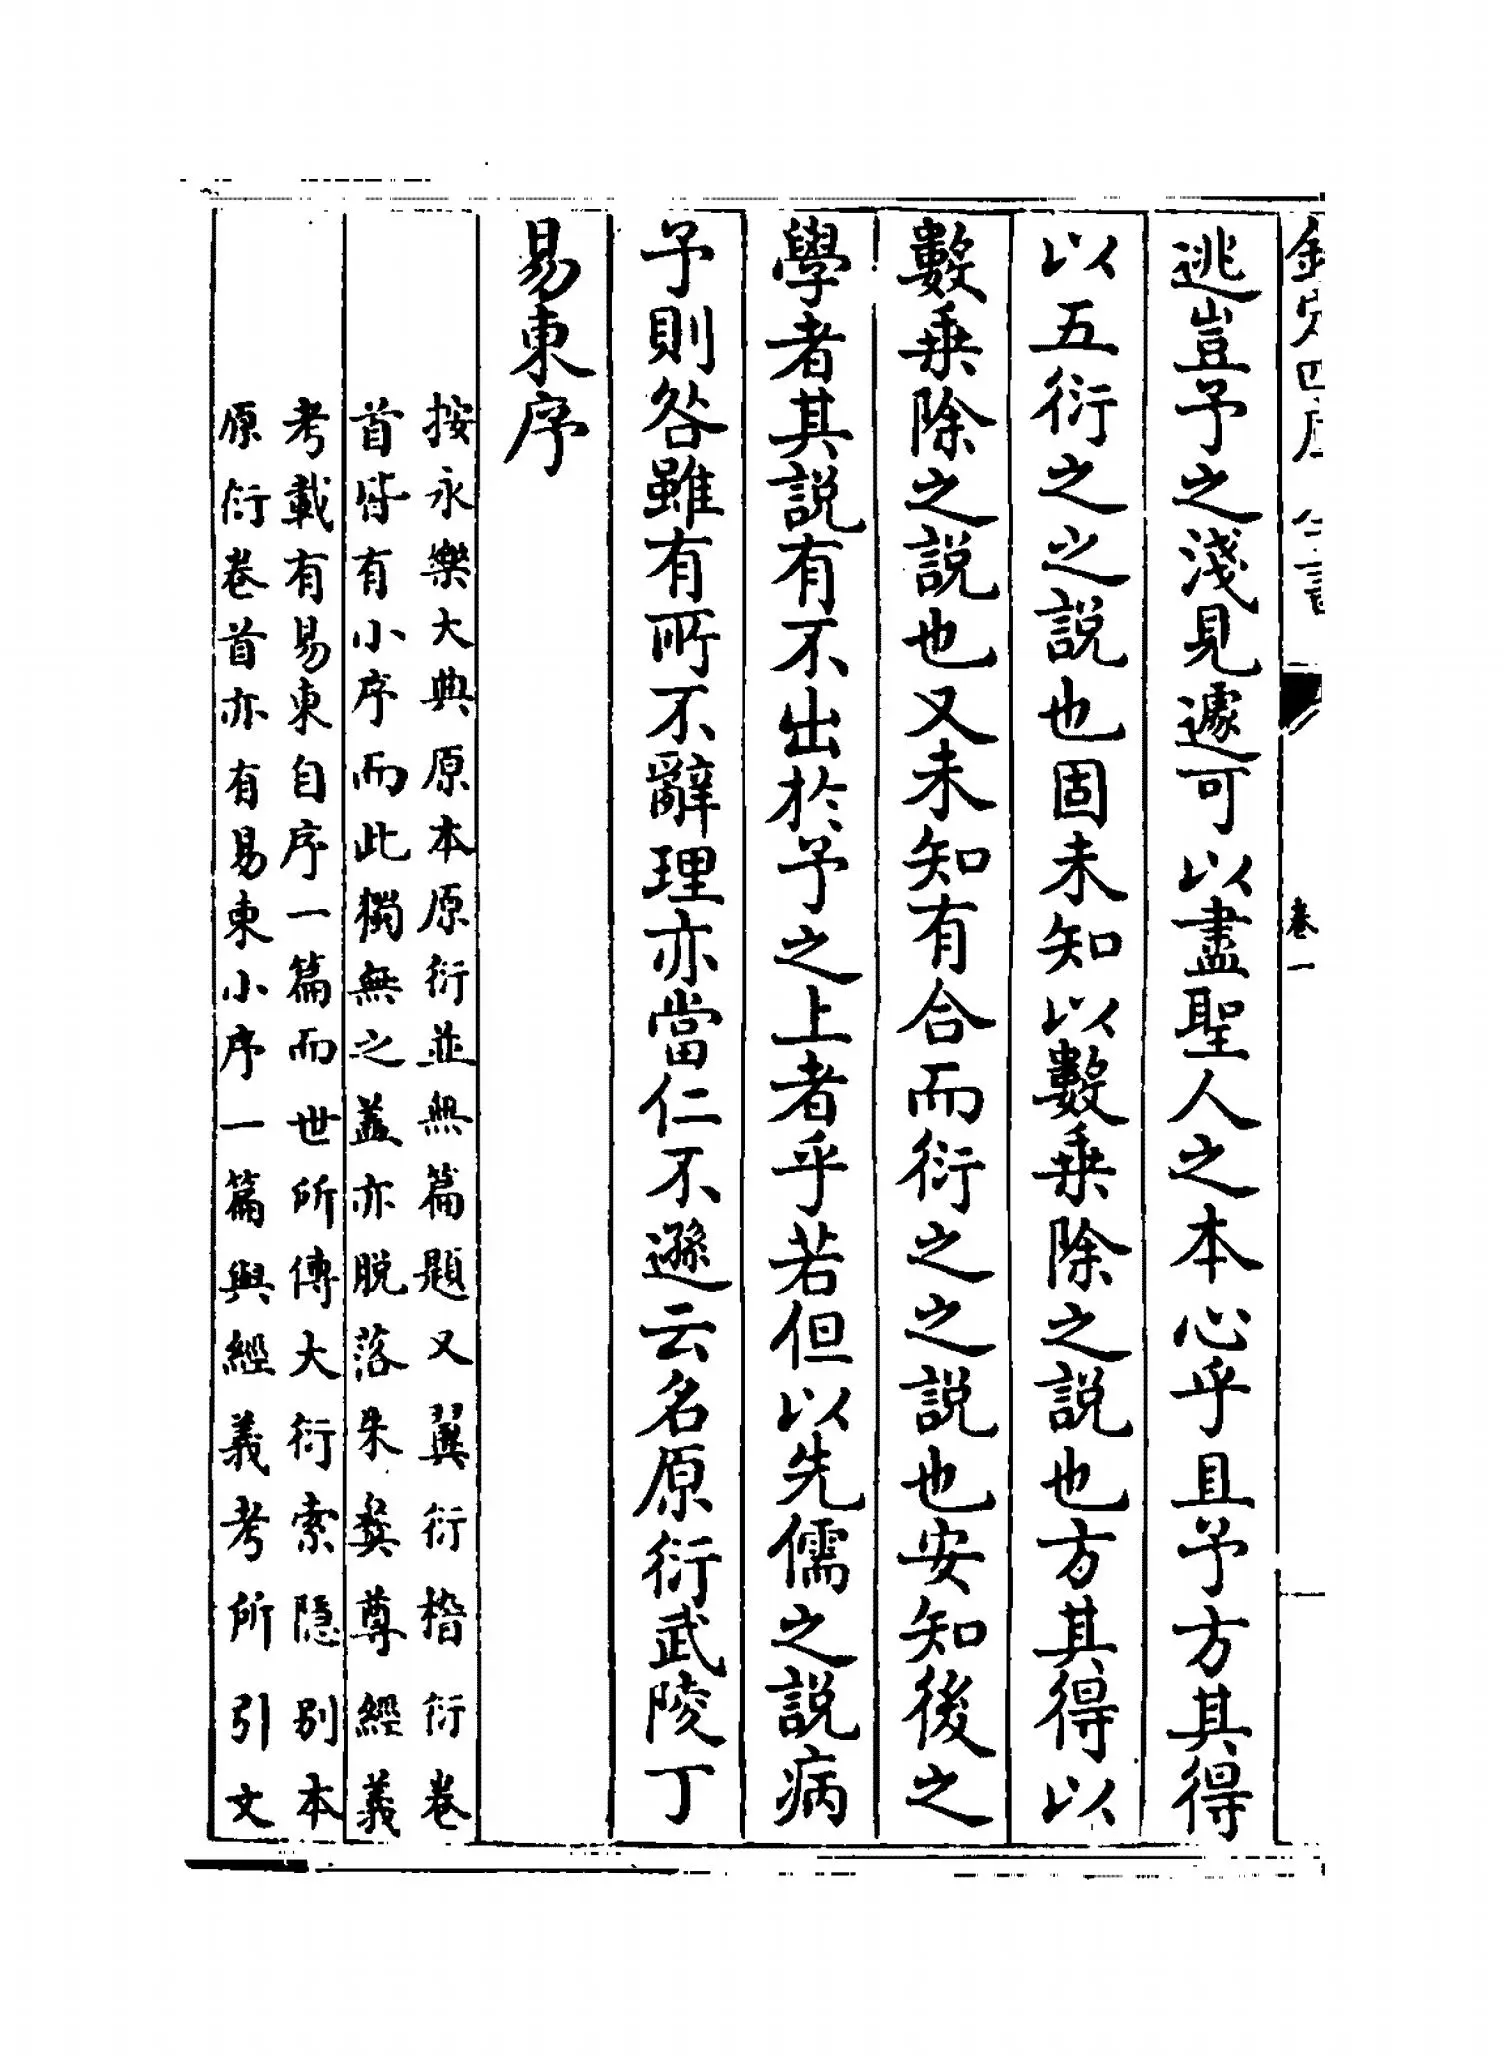 欽定四庫全書 卷一
逃豈予之淺見遽可以盡聖人之本心乎且予方其得
以五衍之之說也固未知以數乗除之說也方其得以
數乗除之說也又未知有合而衍之之說也安知後之
學者其說有不出於予之上者乎若但以先儒之說病
予則咎雖有所不辭理亦當仁不遜云名原衍武陵丁
易東序
按永樂大典原本原衍並無篇題又翼衍稽衍卷
首皆有小序而此獨無之蓋亦脫落朱彝尊經義
考載有易東自序一篇而世所傳大衍索隠别本
原衍卷首亦有易東小序一篇與經義考所引文